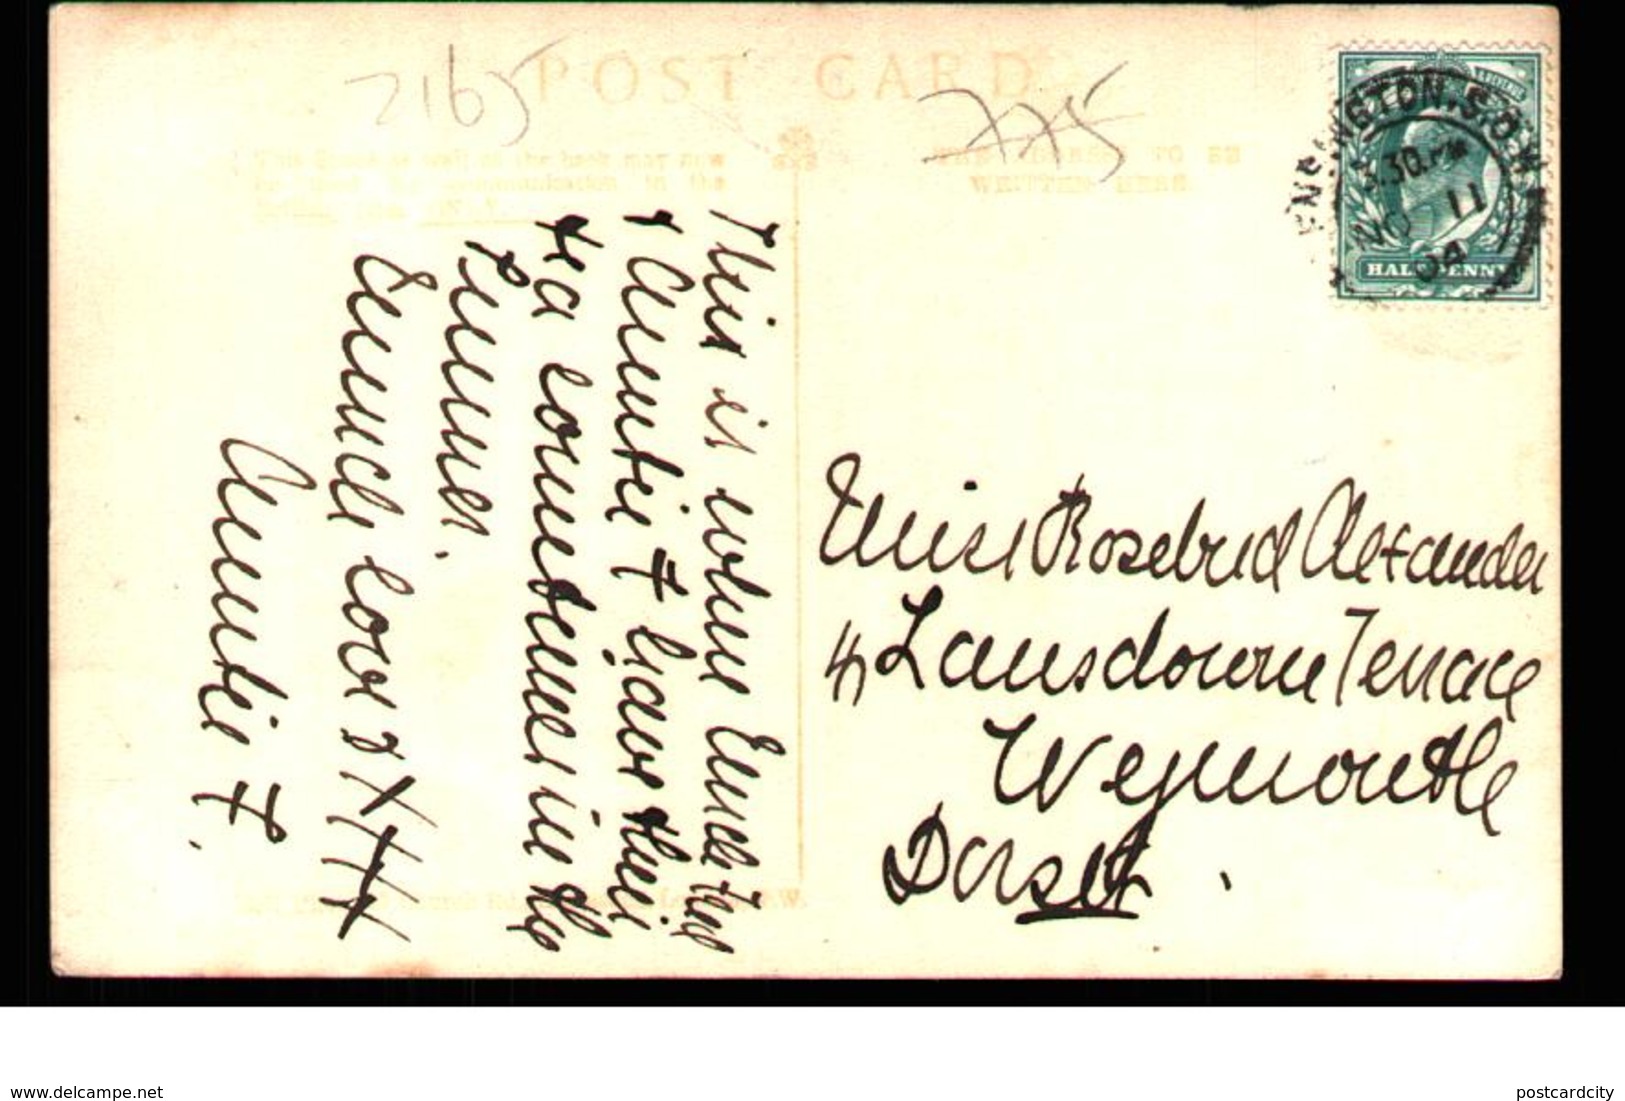 POST CARD
2165
775
THE ADDRESS TO BE
WRITTEN HERE.
This Space as well as the back may now
be used for communication in the
KENSINGTON.S.O.W
3.30.PM
NO 11
04
HALFPENNY
This is where Uncle Fred
& Auntie F have their
tea sometimes in the
Summer.
Much love &
XXXX
Auntie F.
Miss Rosebud Alexander
4 Lansdowne Terrace
Weymouth
Dorset.
delcampe.net
postcardcity